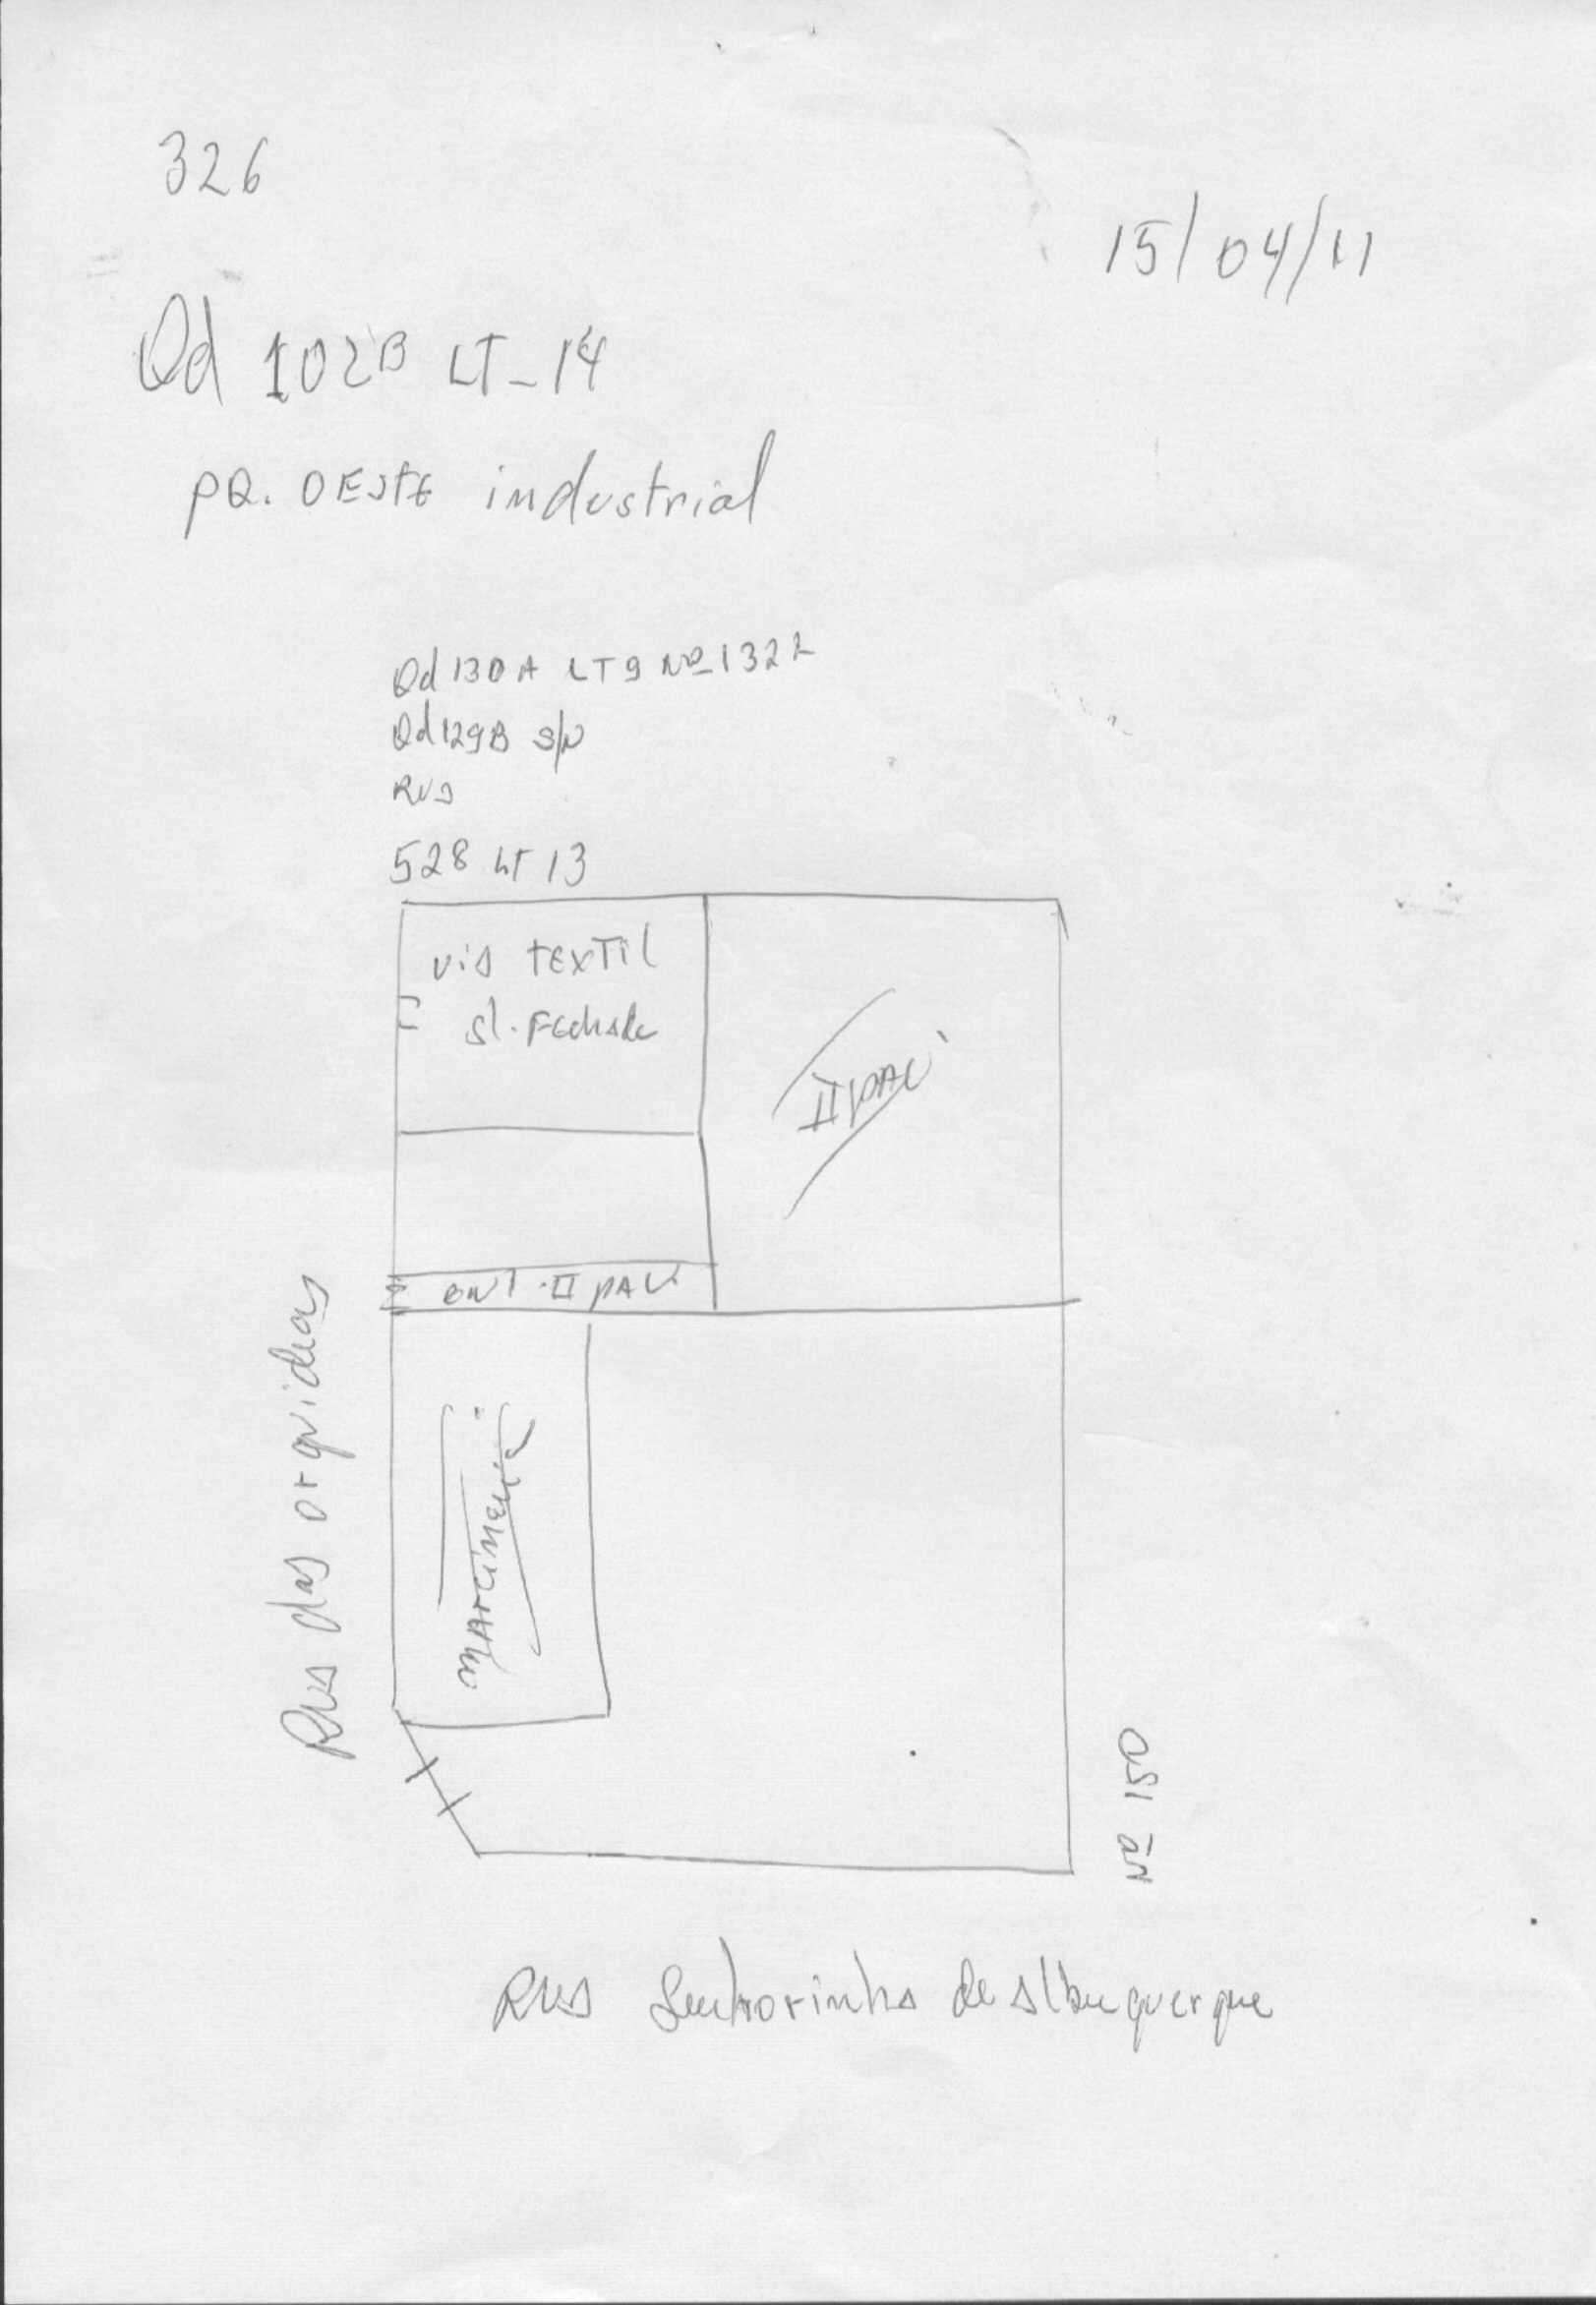 326
15/04/11
Qd 102B LT-14
PQ. OESTE industrial
Qd 130A LT9 Nº 1322
Qd 129B S/N
RUA
528 LT 13
VIA TEXTIL
Sl. Fechada
II PAV
ENT. II PAV.
Rua das orquideas
MARCINERIA
Nº 150
RUA Senhorinha de Albuquerque